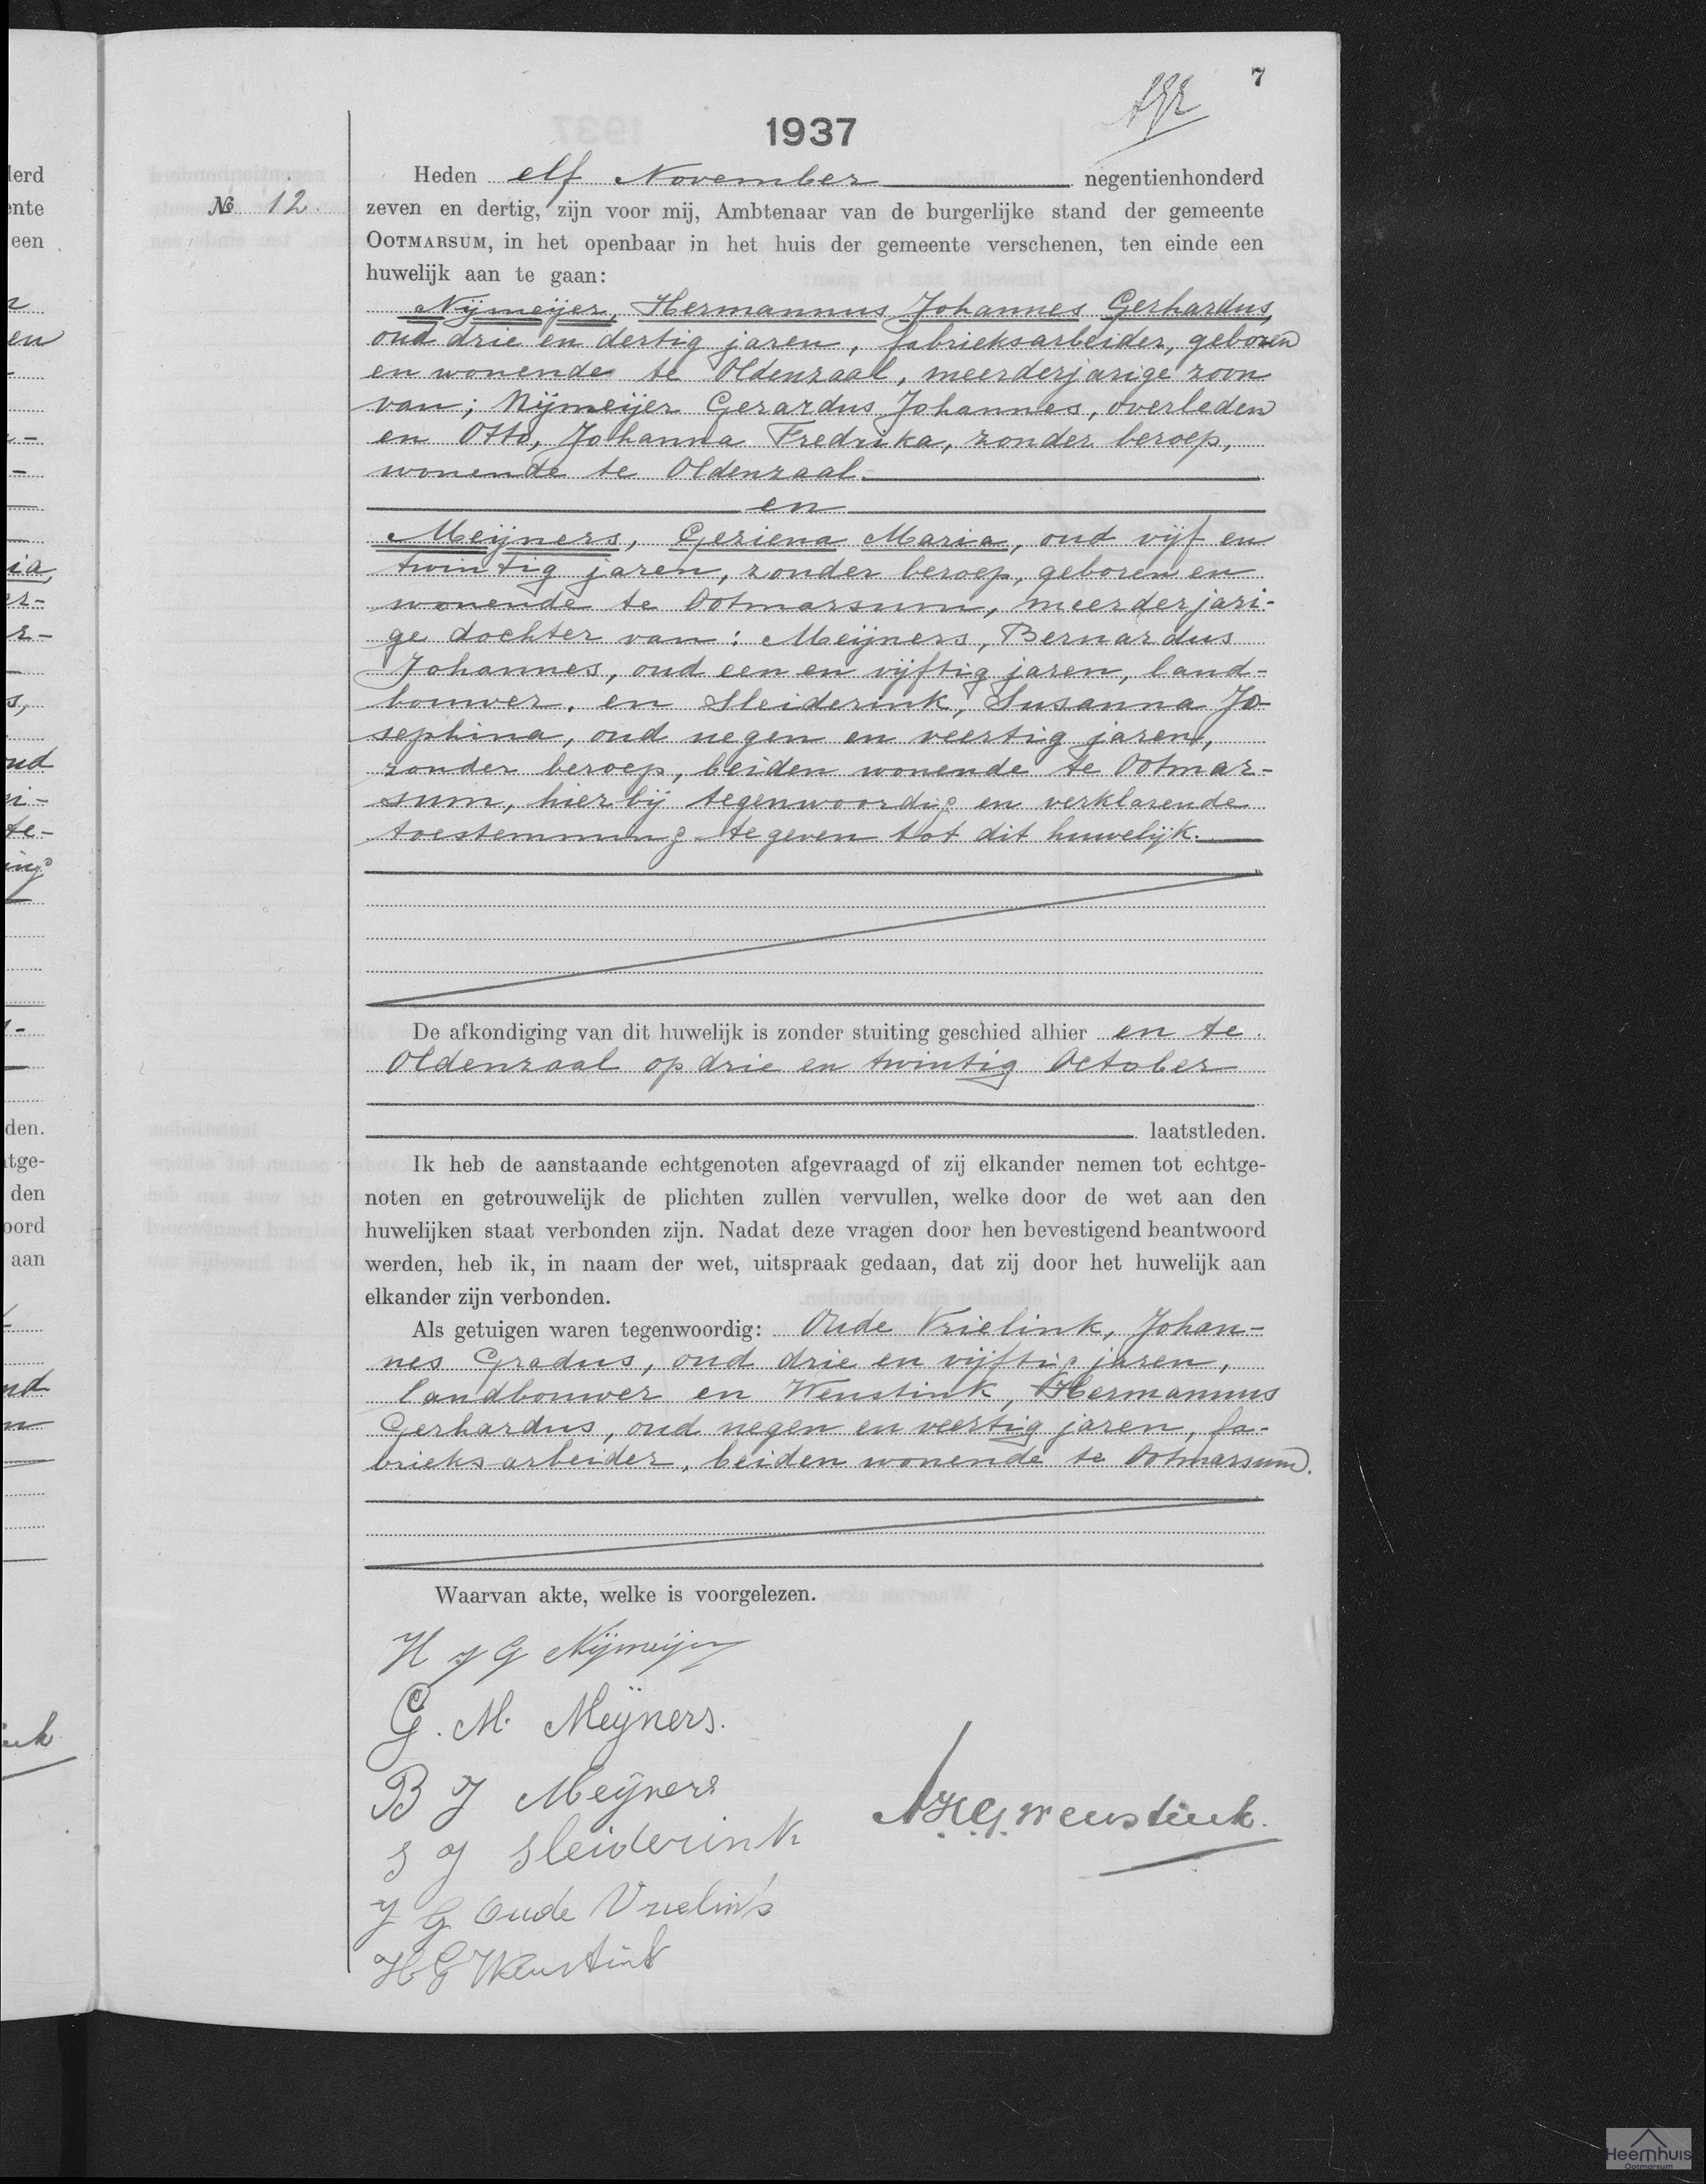 7
1937
Heden elf November negentienhonderd
№ 12.
zeven en dertig, zijn voor mij, Ambtenaar van de burgerlijke stand der gemeente
OOTMARSUM, in het openbaar in het huis der gemeente verschenen, ten einde een
huwelijk aan te gaan:
Nijmeijer, Hermannus Johannes Gerhardus,
oud drie en dertig jaren, fabrieksarbeider, geboren
en wonende te Oldenzaal, meerderjarige zoon
van; Nijmeijer Gerardus Johannes, overleden
en Otto, Johanna Fredrika, zonder beroep,
wonende te Oldenzaal.
en
Meijners, Geziena Maria, oud vijf en
twintig jaren, zonder beroep, geboren en
wonende te Ootmarsum, meerderjari-
ge dochter van: Meijners, Bernardus
Johannes, oud een en vijftig jaren, land-
bouwer, en Sleiderink, Susanna Jo-
sephina, oud negen en veertig jaren,
zonder beroep, beiden wonende te Ootmar-
sum, hierbij tegenwoordig en verklarende
toestemming te geven tot dit huwelijk.
De afkondiging van dit huwelijk is zonder stuiting geschied alhier en te
Oldenzaal op drie en twintig October
laatstleden.
Ik heb de aanstaande echtgenoten afgevraagd of zij elkander nemen tot echtge-
noten en getrouwelijk de plichten zullen vervullen, welke door de wet aan den
huwelijken staat verbonden zijn. Nadat deze vragen door hen bevestigend beantwoord
werden, heb ik, in naam der wet, uitspraak gedaan, dat zij door het huwelijk aan
elkander zijn verbonden.
Als getuigen waren tegenwoordig: Oude Vrielink, Johan-
nes Gradus, oud drie en vijftig jaren,
landbouwer en Weustink, Hermannus
Gerhardus, oud negen en veertig jaren, fa-
brieksarbeider, beiden wonende te Ootmarsum.
Waarvan akte, welke is voorgelezen.
H J G Nijmeijer
G. M. Meijners.
B J Meijners
S J Sleiderink
A.H.G. Weustink.
J G Oude Vrielink
H G Weustink
Heemhuis
Ootmarsum